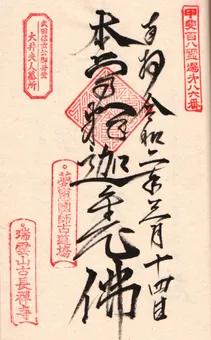 甲斐百八霊場第八六番
奉拝 令和二年三月十四日
本尊釈迦牟尼佛
夢窓國師古道場
武田信玄公御母堂
大井夫人墓所
瑞雲山古長禅寺